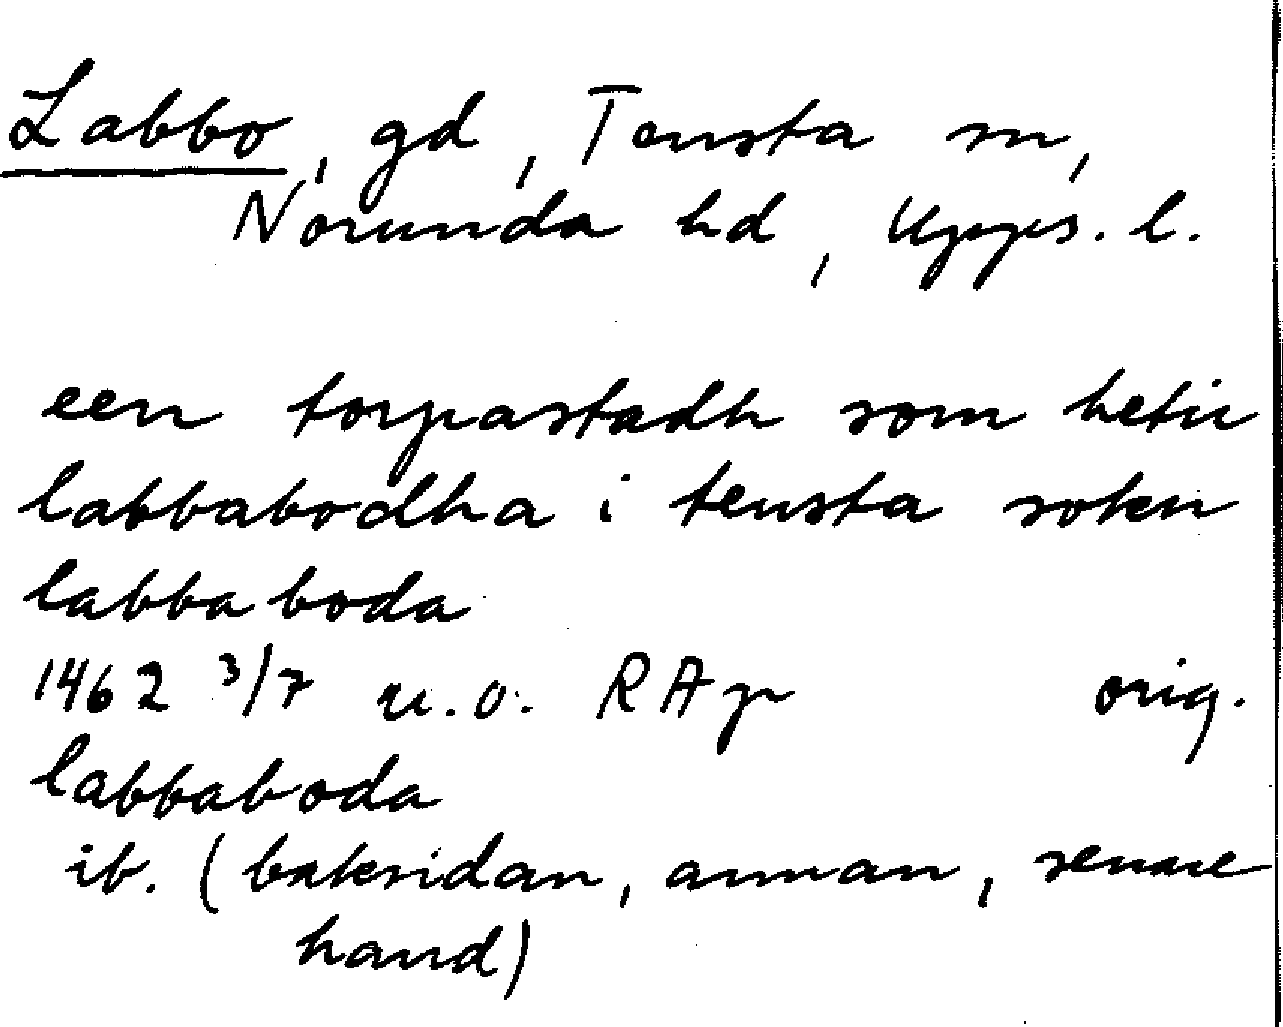 Labbo, gd, Tensta sn,
Norunda hd, Upps. l.
een torpastadh som hetir
labbabodha i tensta sokn
labbaboda
1462 3/7 u.o. RAp orig.
labbaboda
ib. (baksidan, annan, senare
hand)